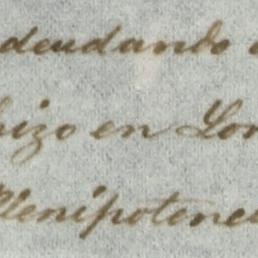 deudando
hizo en Lon
Plenipotenci